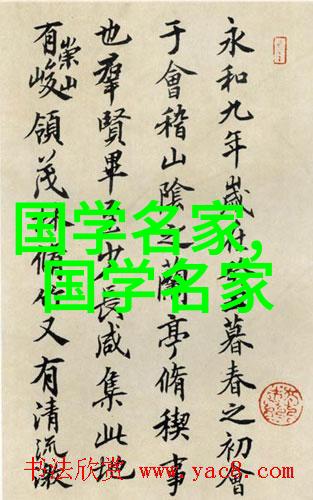 永和九年歲在暮春之初會
于會稽山陰之蘭亭脩稧事
也羣賢畢至少長咸集此地
有崇山峻領茂林脩竹又有清流激
国学名家,
国学名家
书法欣赏 www.yac8.com